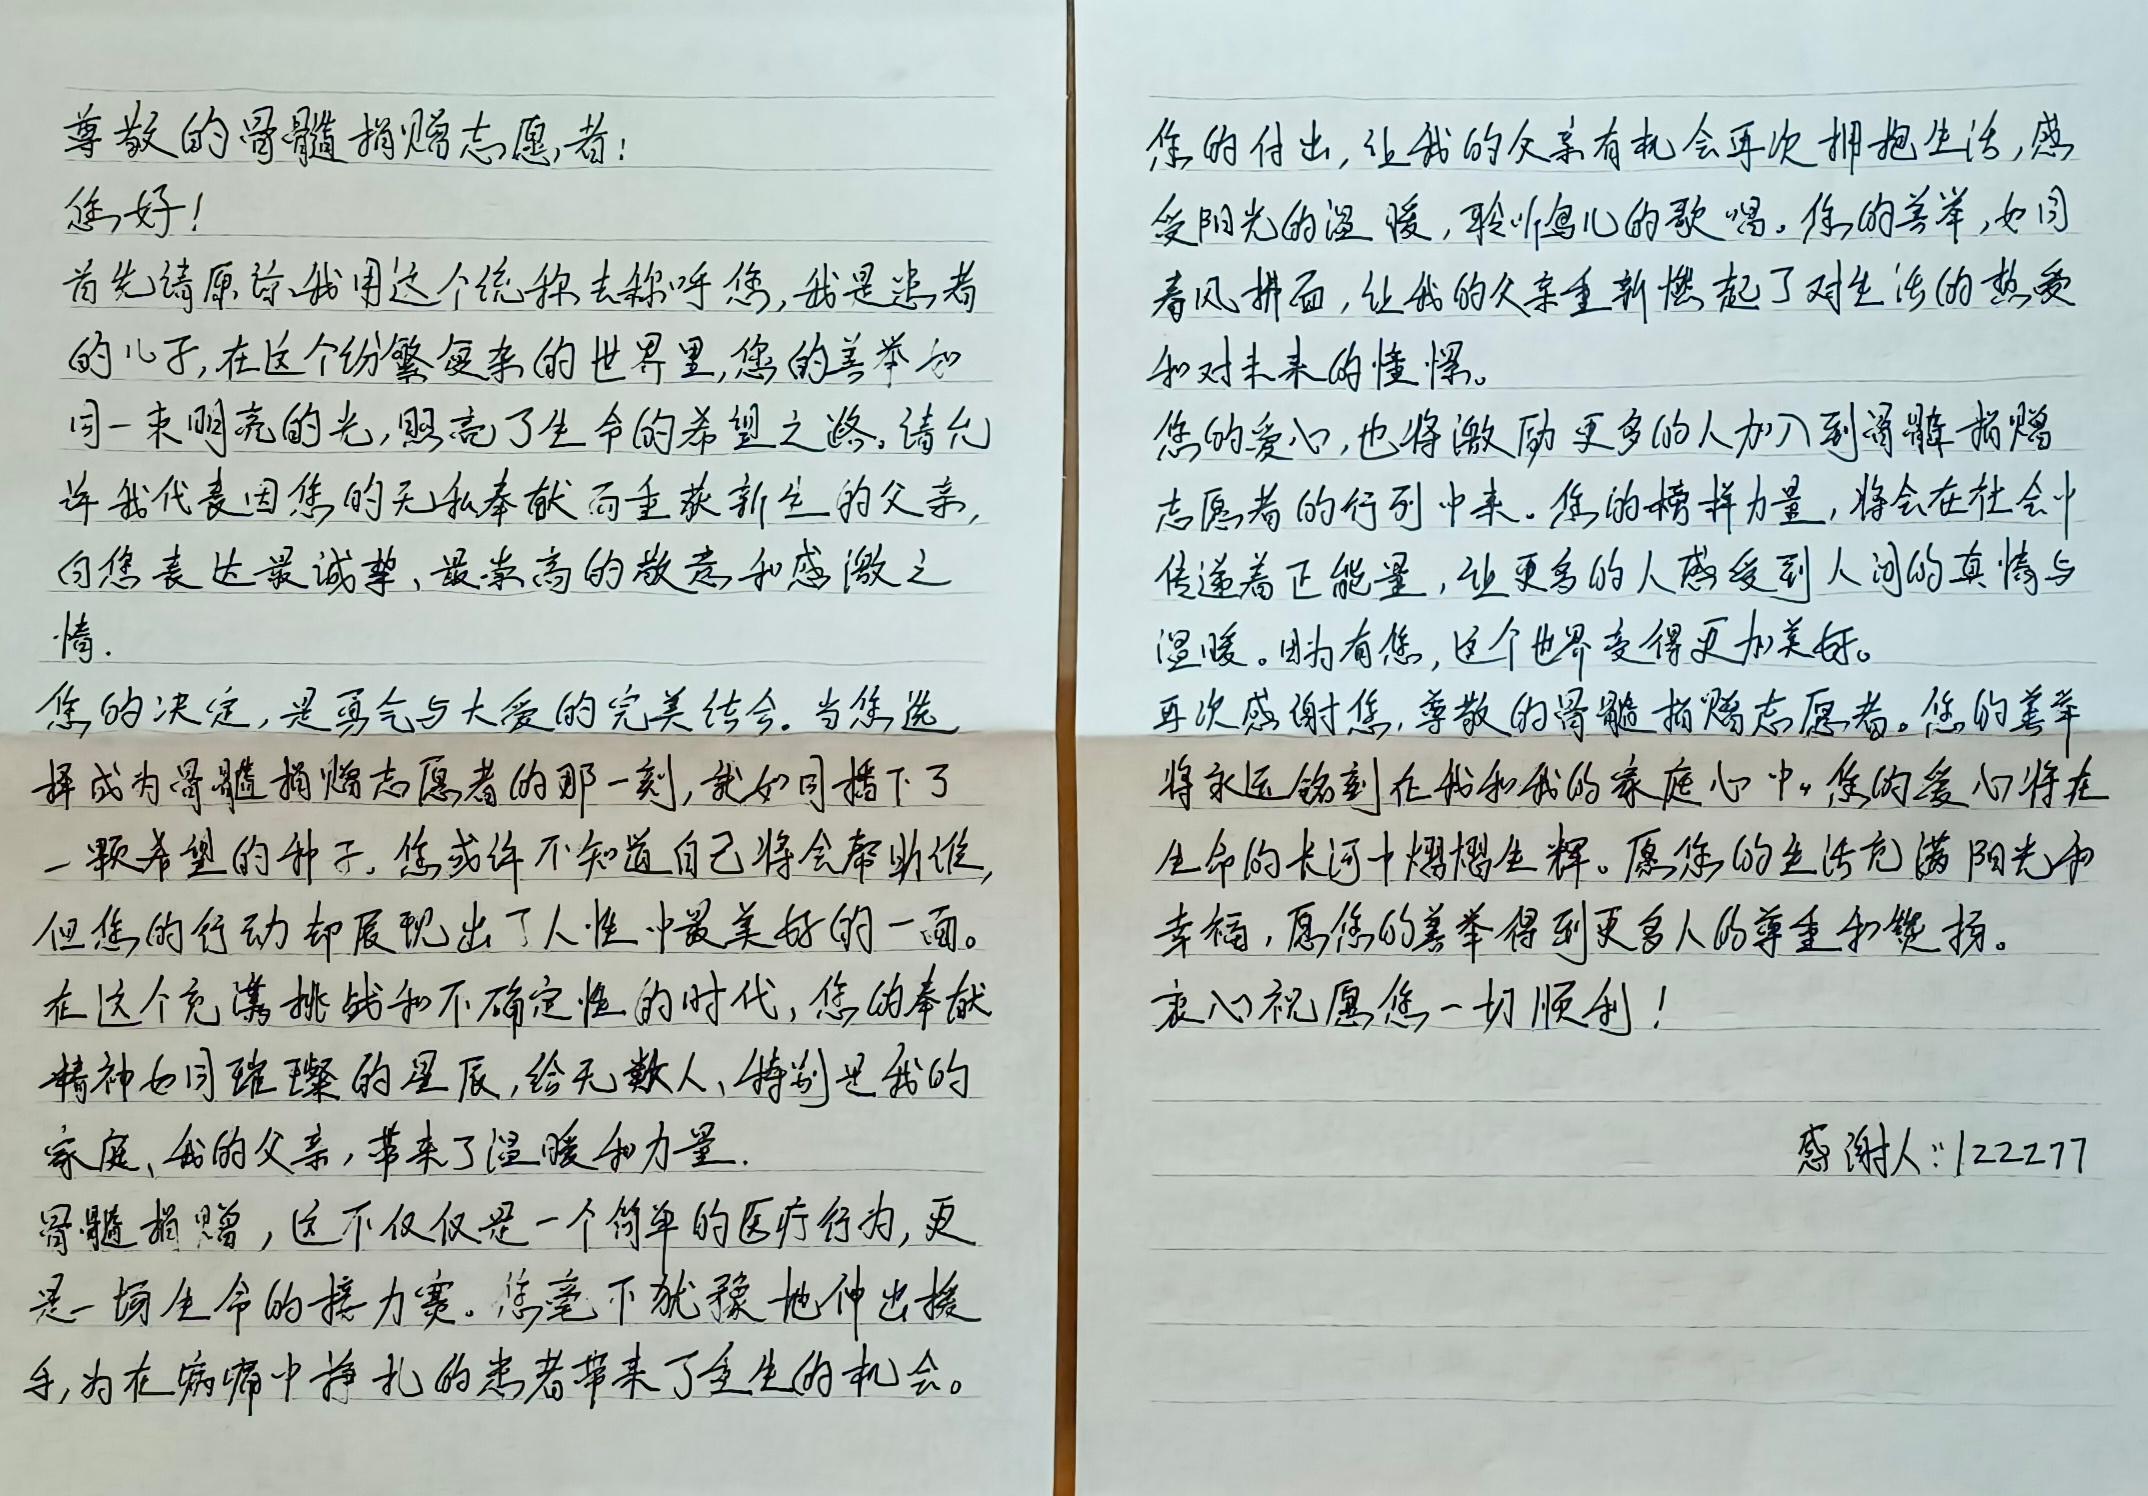 尊敬的骨髓捐赠志愿者：
您好！
首先请原谅我用这个统称去称呼您，我是患者
的儿子，在这个纷繁复杂的世界里，您的善举如
同一束明亮的光，照亮了生命的希望之路。请允
许我代表因您的无私奉献而重获新生的父亲，
向您表达最诚挚、最崇高的敬意和感激之
情.
您的决定，是勇气与大爱的完美结合.当您选
择成为骨髓捐赠志愿者的那一刻，就如同播下了
一颗希望的种子.您或许不知道自己将会帮助谁，
但您的行动却展现出了人性中最美好的一面。
在这个充满挑战和不确定性的时代，您的奉献
精神如同璀璨的星辰，给无数人、特别是我的
家庭、我的父亲，带来了温暖和力量.
骨髓捐赠，这不仅仅是一个简单的医疗行为，更
是一场生命的接力赛。您毫不犹豫地伸出援
手，为在病痛中挣扎的患者带来了重生的机会。
您的付出，让我的父亲有机会再次拥抱生活，感
受阳光的温暖，聆听鸟儿的歌唱。您的善举，如同
春风拂面，让我的父亲重新燃起了对生活的热爱
和对未来的憧憬。
您的爱心，也将激励更多的人加入到骨髓捐赠
志愿者的行列中来。您的榜样力量，将会在社会中
传递着正能量，让更多的人感受到人间的真情与
温暖。因为有您，这个世界变得更加美好。
再次感谢您，尊敬的骨髓捐赠志愿者。您的善举
将永远铭刻在我和我的家庭心中。您的爱心将在
生命的长河中熠熠生辉。愿您的生活充满阳光和
幸福，愿您的善举得到更多人的尊重和赞扬。
衷心祝愿您一切顺利！
感谢人：122277